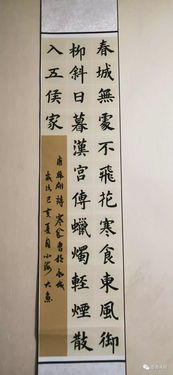 春城無處不飛花寒食東風御
柳斜日暮漢宮傳蠟燭輕煙散
入五侯家
唐韓翃詩寒食書於永城
歲次己亥夏月